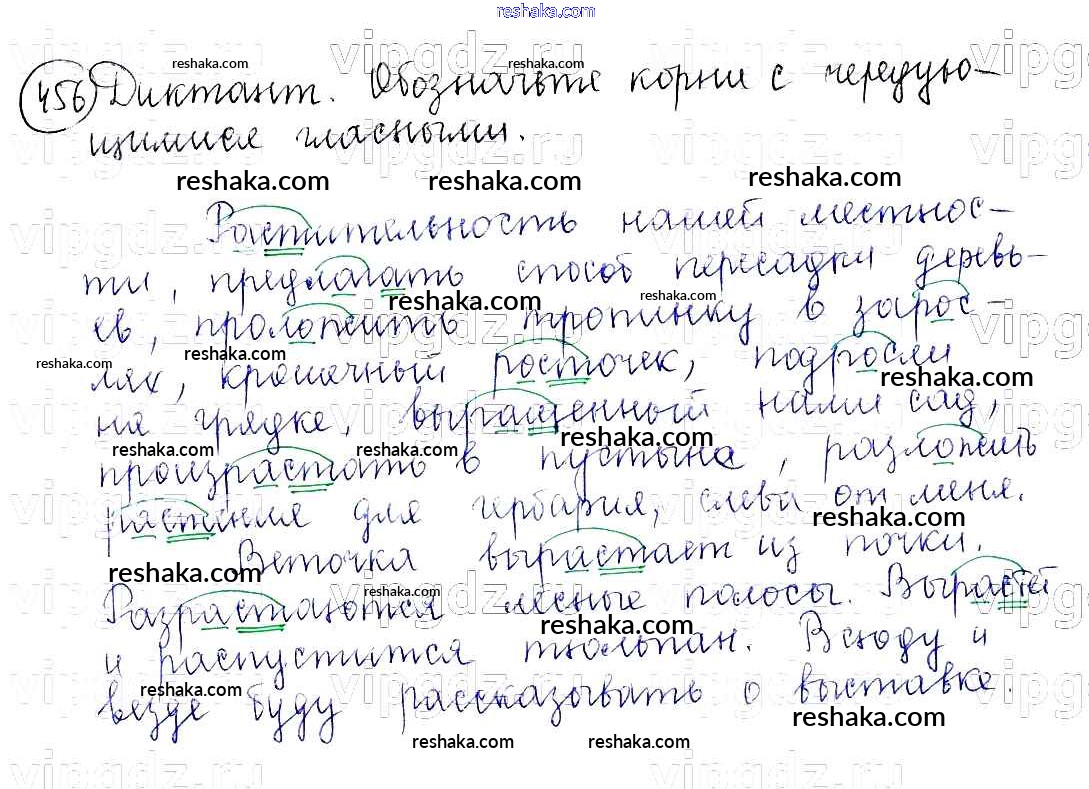 reshaka.com
456 Диктант. Обозначьте корни с чередую-
щимися гласными.
Растительность нашей местнос-
ти, предлагать способ пересадки деревь-
ев, проложить тропинку в зарос-
лях, крошечный росточек, подросли
на грядке, выращенный нами сад,
произрастать в пустыне, разложить
растения для гербария, слева от меня.
Веточка вырастает из почки.
Разрастаются лесные полосы. Вырастет
и распустится тюльпан. Всюду и
везде буду рассказывать о выставке.